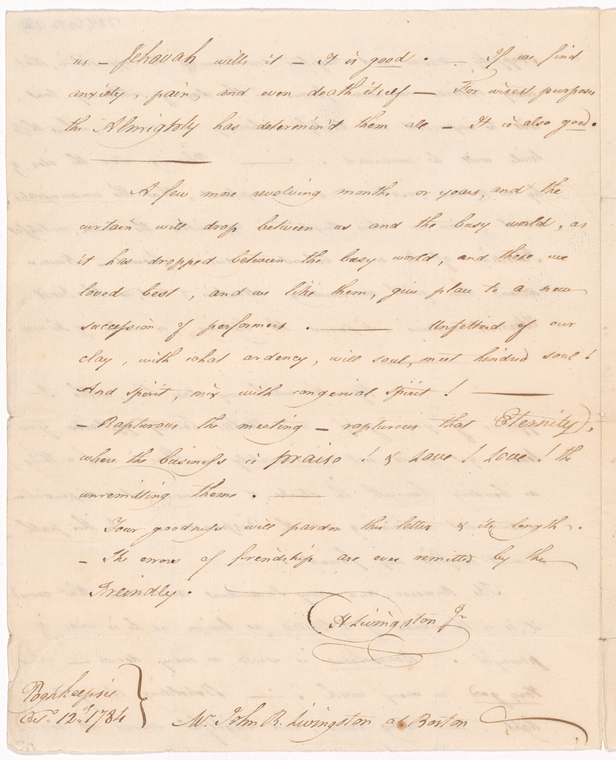 us — Jehovah wills it — It is good . — If we find
anxiety, pain, and even death itself — For wisest purposes
the Almighty has determin'd them all — It is also good.
A few more revolving months, or years, and the
curtain will drop between us and the busy world, as
it has dropped between the busy world, and those we
loved best, and we like them, give place to a new
succession of performers . — Unfetter'd of our
clay, with what ardency, will soul, meet kindred soul!
And spirit, mix with congenial spirit! —
— Rapturous the meeting — rapturous that Eternity,
where the business is praise! & Love! Love! the
unremitting theme . —
Your goodness will pardon this letter & its length .
— The errors of friendship are ever remitted by the
Freindly .
H Livingston Jr
Poghkeepsie
12th 1784
Mr. John R. Livingston at Boston